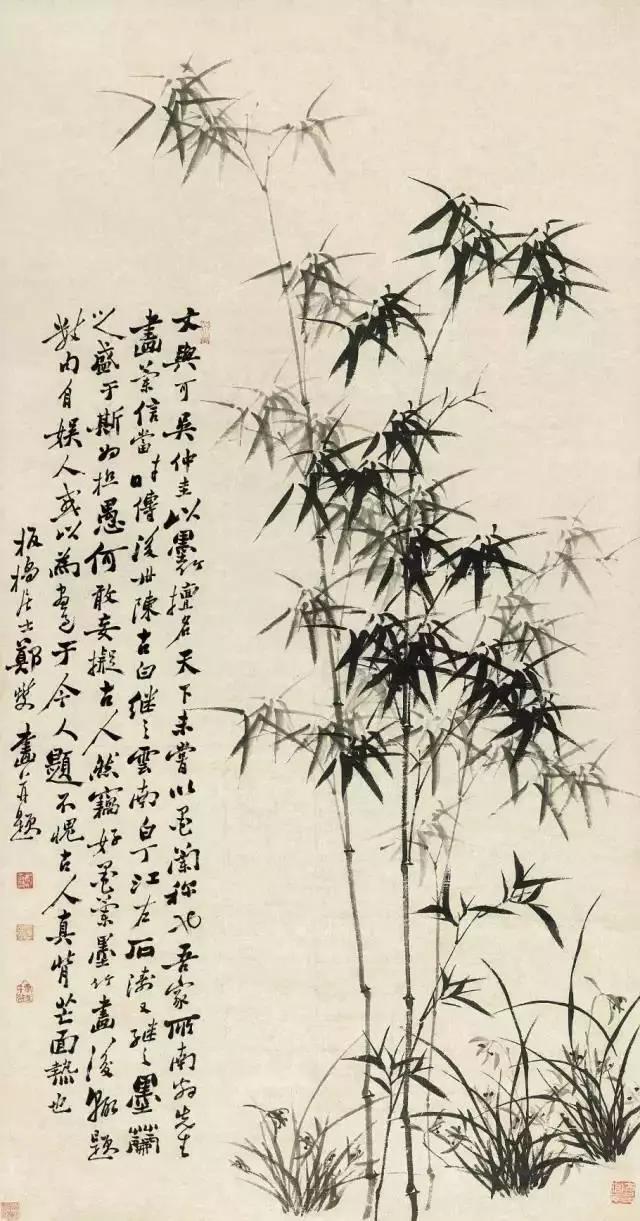 文與可吳仲圭以墨竹擅名天下未嘗以墨蘭稱也吾家所南翁先生
畫蘭信當時傳後世陳古白繼之雲南白丁江左石濤又繼之墨蘭
之盛于斯為極愚何敢妄擬古人然竊好墨蘭墨竹畫後輒題
自娛人或以為于今人不愧古人真背芒面熱也
板橋居士鄭燮畫并題